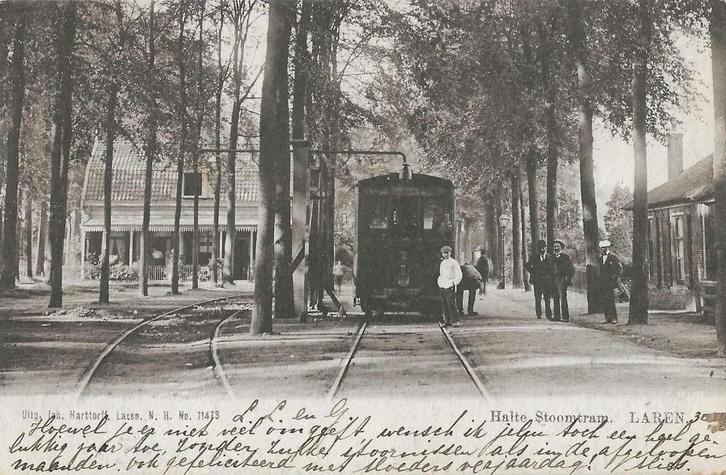 Uitg. Joh. Harttorff, Laren, N. H. No. 11473
Halte Stoomtram. LAREN.
L. L. en G
Hoewel je er niet veel om geeft, wensch ik jelui toch een heel ge-
lukkig jaar toe, zonder zulke stoornissen als in de afgeloopen
maanden. ook gefeliciteerd met Moeders verjaardag.